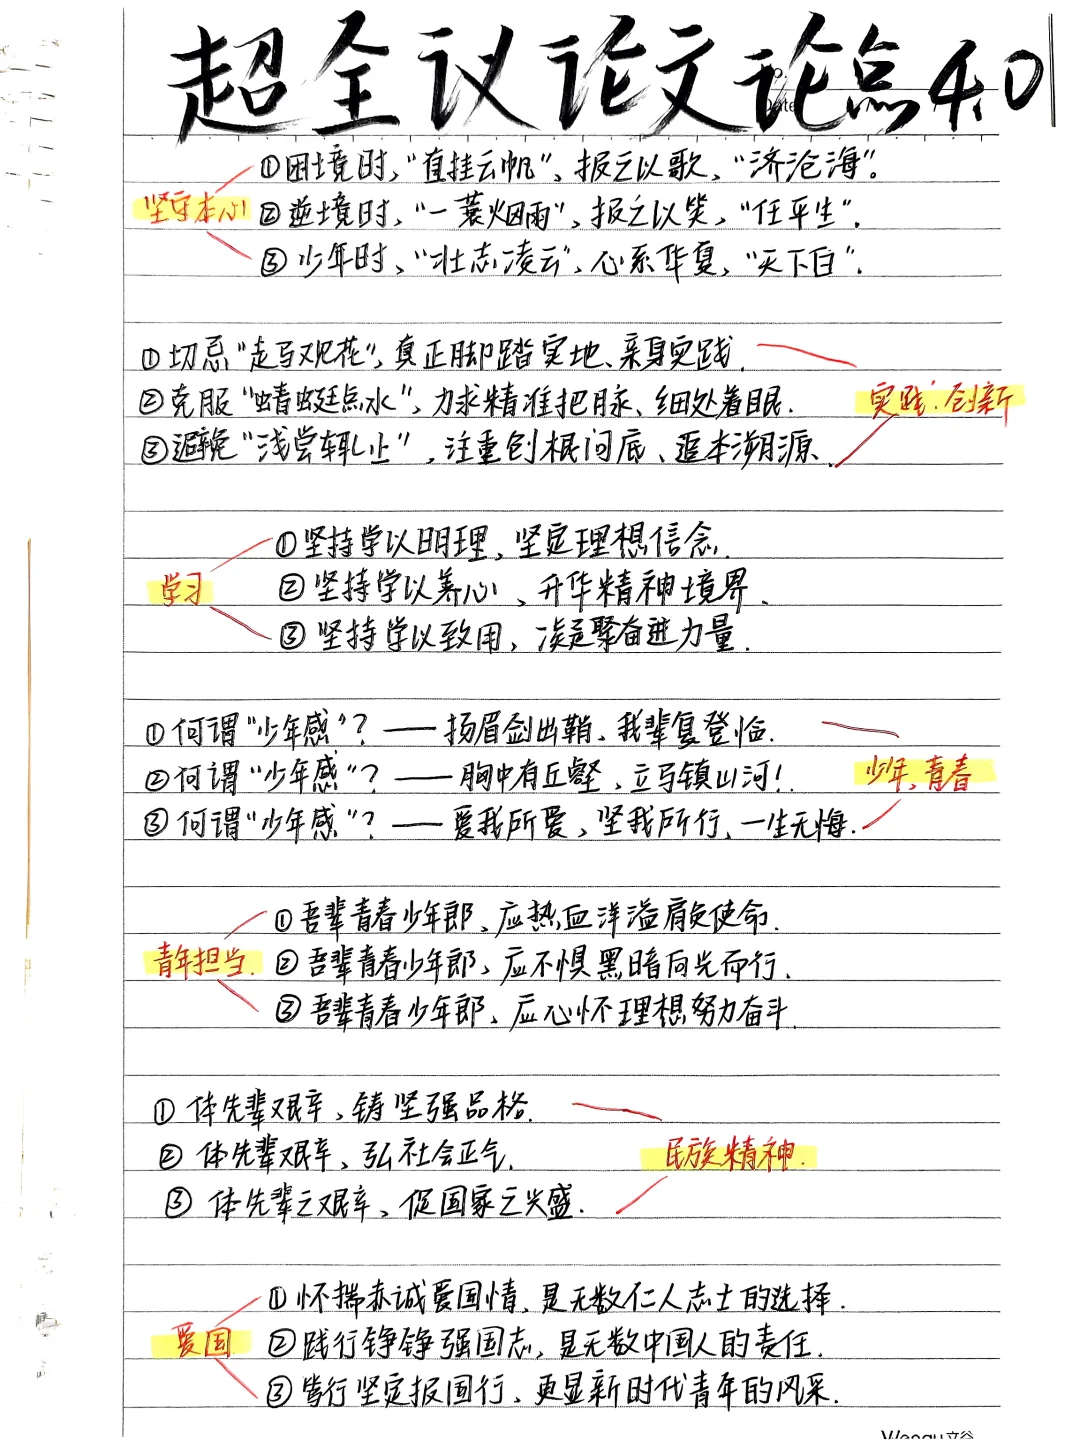 超全议论文论点4.0
Date
①困境时，“直挂云帆”，报之以歌，“济沧海”。
坚守本心 ②逆境时，“一蓑烟雨”，报之以笑，“任平生”.
③少年时，“壮志凌云”，心系华夏，“天下白”.
①切忌“走马观花”，真正脚踏实地、亲身实践.
②克服“蜻蜓点水”，力求精准把脉、细处着眼. 实践.创新
③避免“浅尝辄止”，注重刨根问底、追本溯源.
①坚持学以明理，坚定理想信念.
学习 ②坚持学以养心，升华精神境界.
③坚持学以致用，凝聚奋进力量.
①何谓“少年感”？——扬眉剑出鞘、我辈复登临.
②何谓“少年感”？——胸中有丘壑，立马镇山河！ 少年、青春
③何谓“少年感”？——爱我所爱，坚我所行、一生无悔.
①吾辈青春少年郎、应热血洋溢肩负使命.
青年担当. ②吾辈青春少年郎，应不惧黑暗向光而行.
③吾辈青春少年郎、应心怀理想努力奋斗.
①体先辈艰辛，铸坚强品格.
②体先辈艰辛，弘社会正气. 民族精神.
③体先辈之艰辛，促国家之兴盛.
①怀揣赤诚爱国情，是无数仁人志士的选择.
爱国 ②践行铮铮强国志，是无数中国人的责任.
③笃行坚定报国行、更显新时代青年的风采.